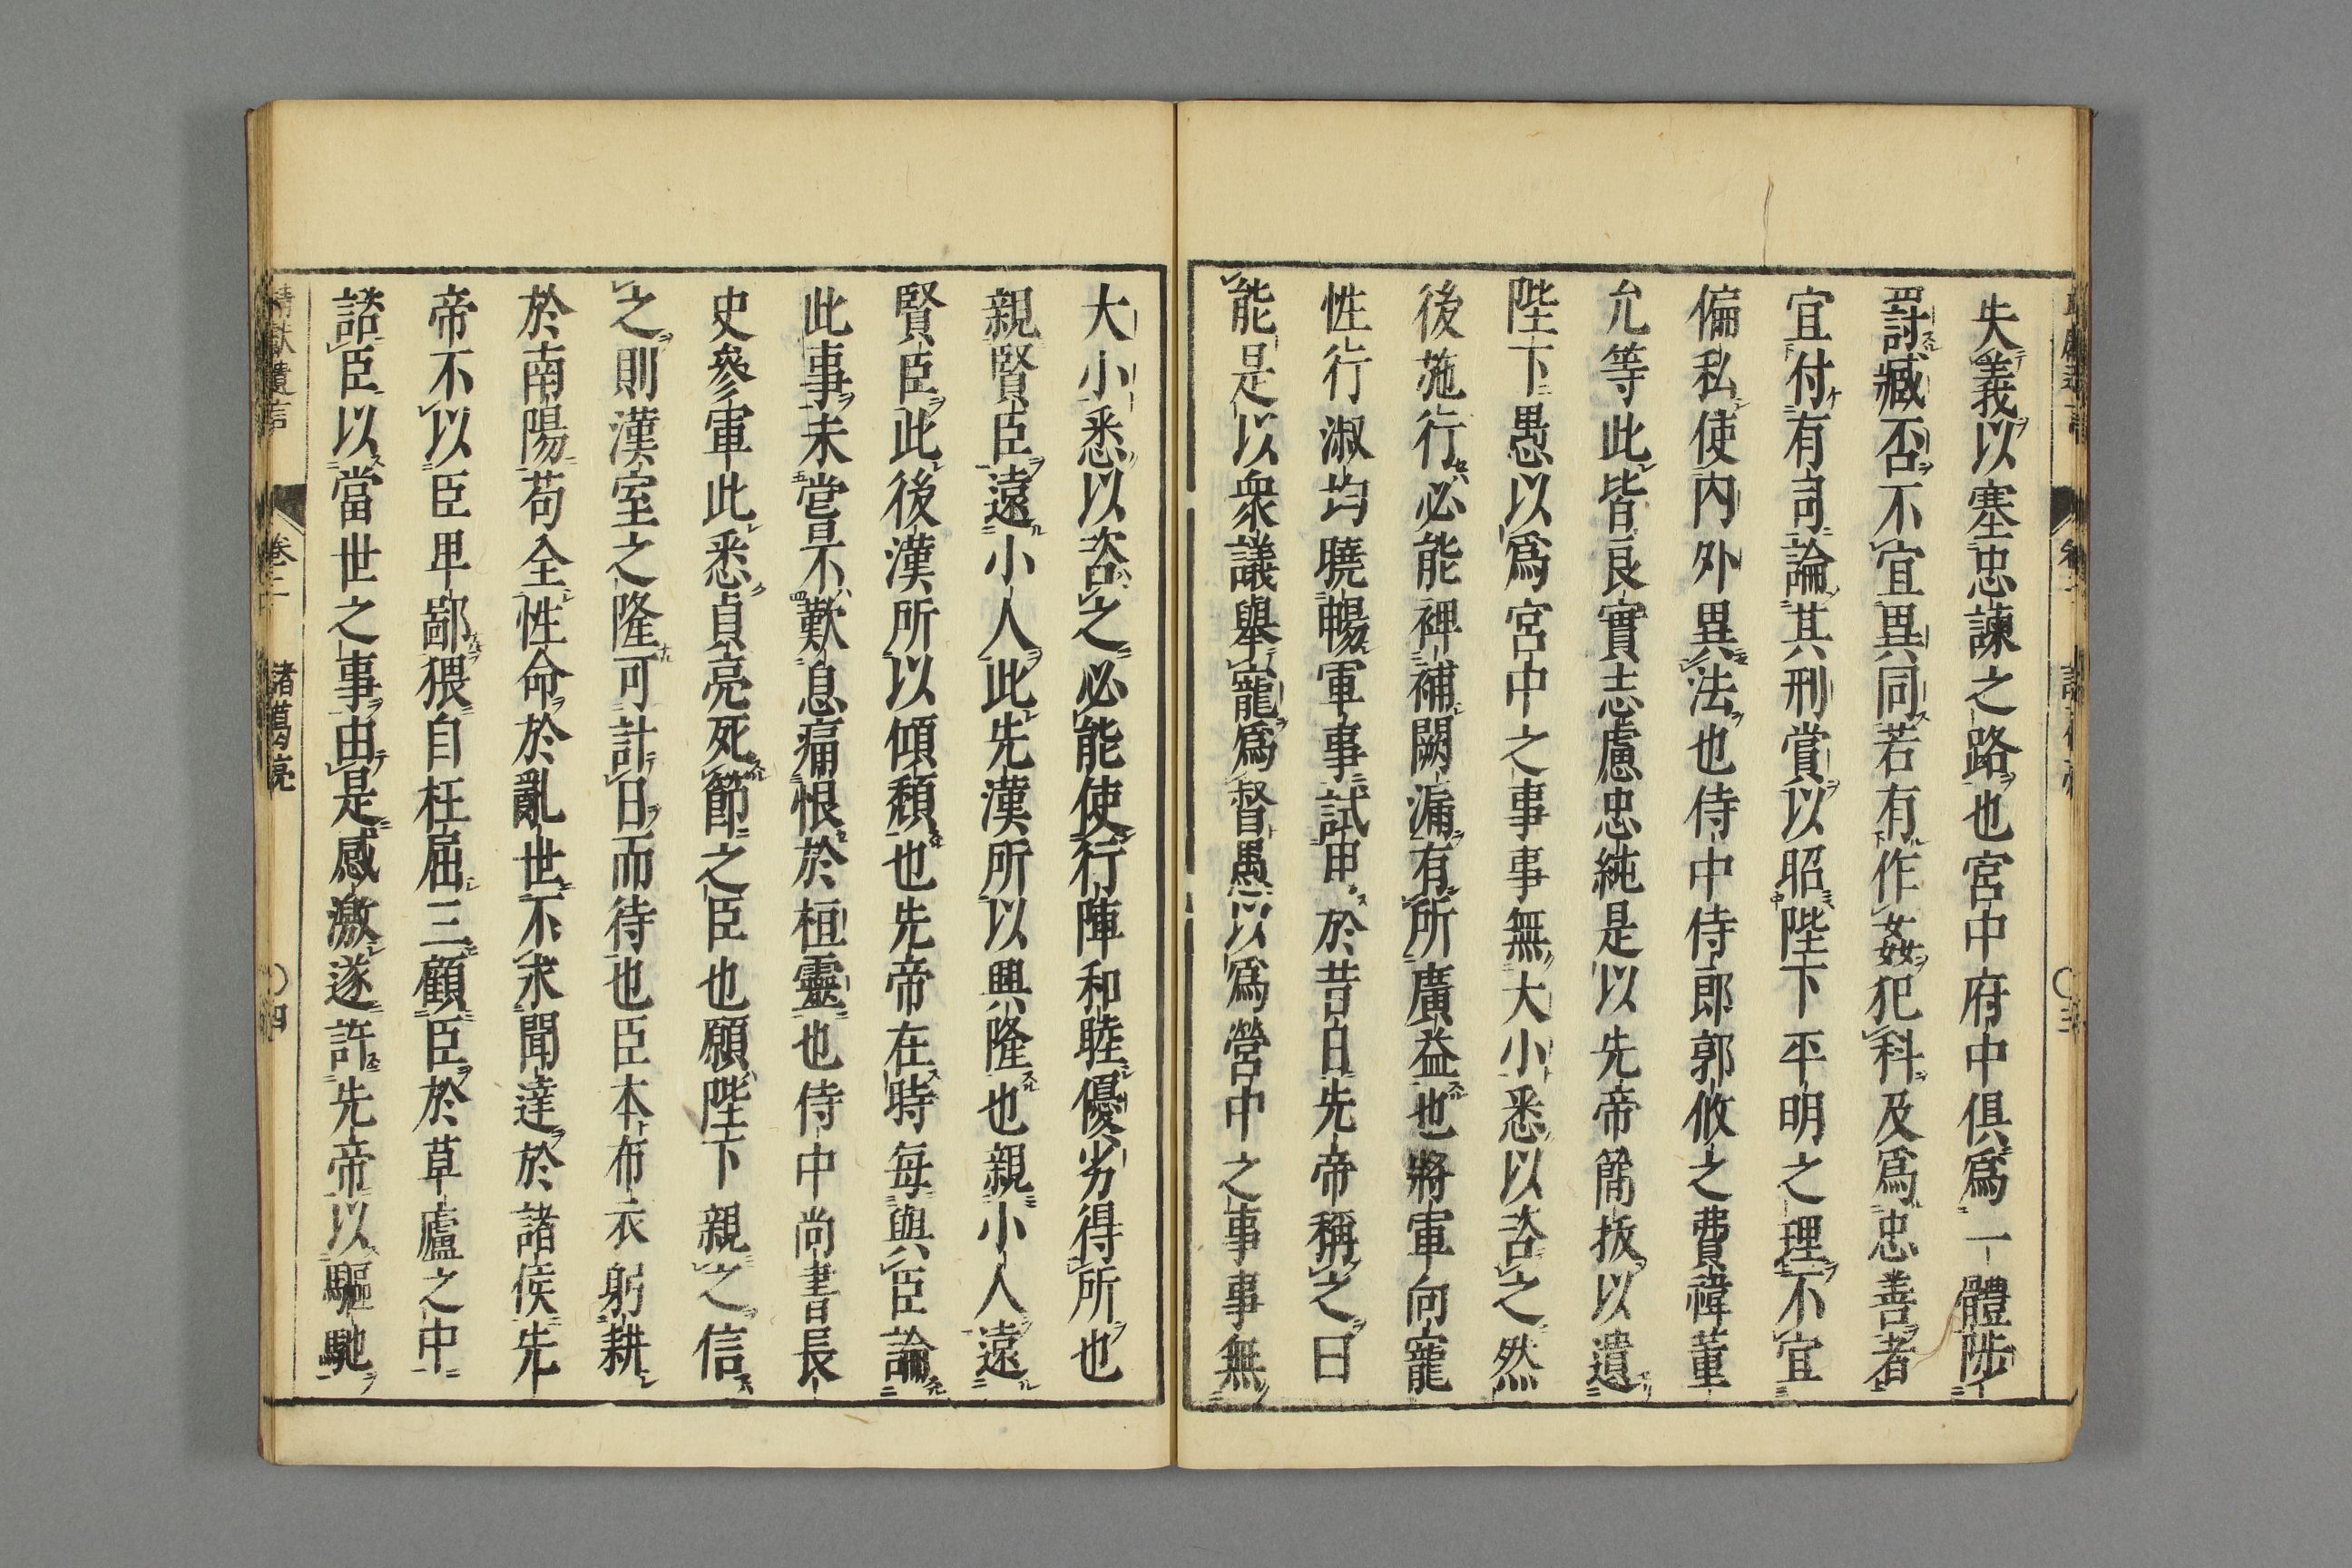 失義以塞忠諫之路也宮中府中俱爲一體陟
罸臧否不宜異同若有作姦犯科及爲忠善者
宜付有司論其刑賞以昭陛下平明之理不宜
偏私使內外異法也侍中侍郎郭攸之費禕董
允等此皆良實志慮忠純是以先帝簡拔以遺
陛下愚以爲宮中之事事無大小悉以咨之然
後施行必能裨補闕漏有所廣益也將軍向寵
性行淑均曉暢軍事試用於昔日先帝稱之曰
能是以衆議舉寵爲督愚以爲營中之事事無
大小悉以咨之必能使行陣和睦優劣得所也
親賢臣遠小人此先漢所以興隆也親小人遠
賢臣此後漢所以傾頽也先帝在時每與臣論
此事未嘗不歎息痛恨於桓靈也侍中尚書長
史參軍此悉貞亮死節之臣也願陛下親之信
之則漢室之隆可計日而待也臣本布衣躬耕
於南陽苟全性命於亂世不求聞達於諸侯先
帝不以臣卑鄙猥自枉屈三顧臣於草廬之中
諮臣以當世之事由是感激遂許先帝以驅馳
靖獻遺言 卷二 諸葛亮 〇四